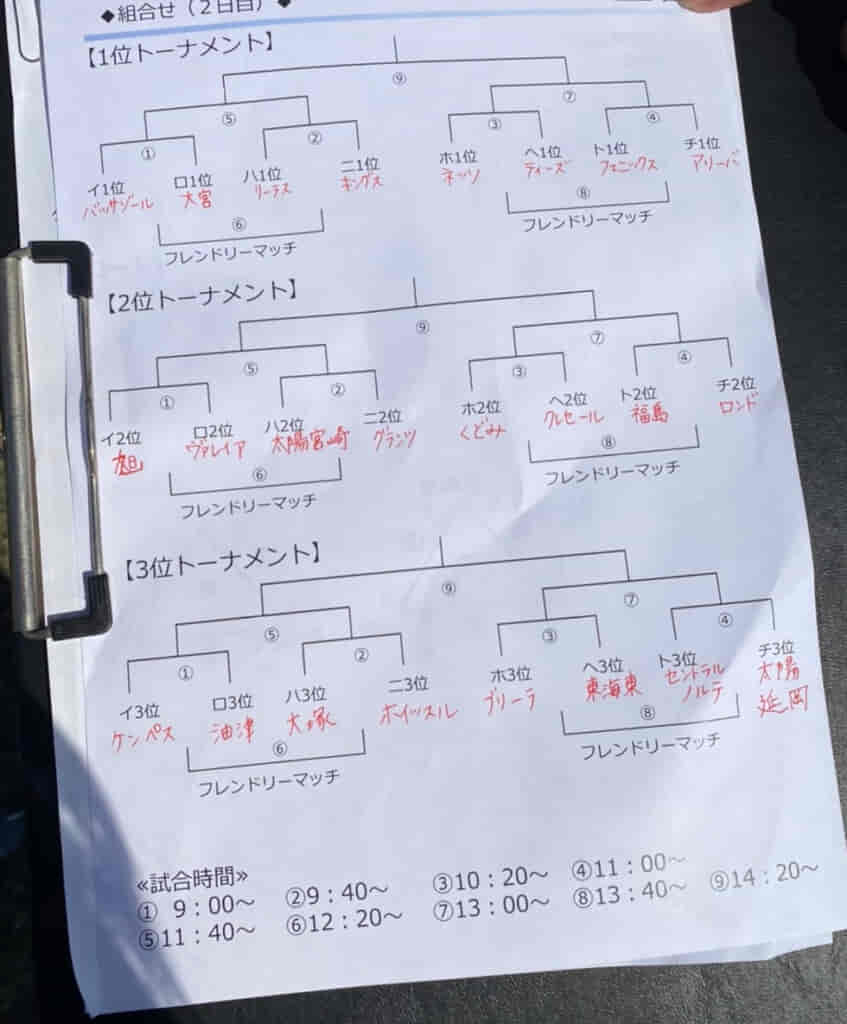 ◆組合せ（２日目）◆
【1位トーナメント】
⑨
⑤ ⑦
① ② ③ ④
イ1位 ロ1位 ハ1位 ニ1位 ホ1位 ヘ1位 ト1位 チ1位
バッサゾール 大宮 リーテス キングス ネッツ ティーズ フェニックス アリーバ
⑥ ⑧
フレンドリーマッチ フレンドリーマッチ
【2位トーナメント】
⑨
⑤ ⑦
① ② ③ ④
イ2位 ロ2位 ハ2位 ニ2位 ホ2位 ヘ2位 ト2位 チ2位
旭 ヴァレイア 太陽宮崎 グランツ くどみ クルセール 福島 ロンド
⑥ ⑧
フレンドリーマッチ フレンドリーマッチ
【3位トーナメント】
⑨
⑤ ⑦
① ② ③ ④
イ3位 ロ3位 ハ3位 ニ3位 ホ3位 ヘ3位 ト3位 チ3位
ケンペス 油津 大塚 ホイッスル ブリーラ 東海東 セントラル 太陽
ノルテ 延岡
⑥ ⑧
フレンドリーマッチ フレンドリーマッチ
≪試合時間≫
① 9：00～ ②9：40～ ③10：20～ ④11：00～
⑤11：40～ ⑥12：20～ ⑦13：00～ ⑧13：40～ ⑨14：20～